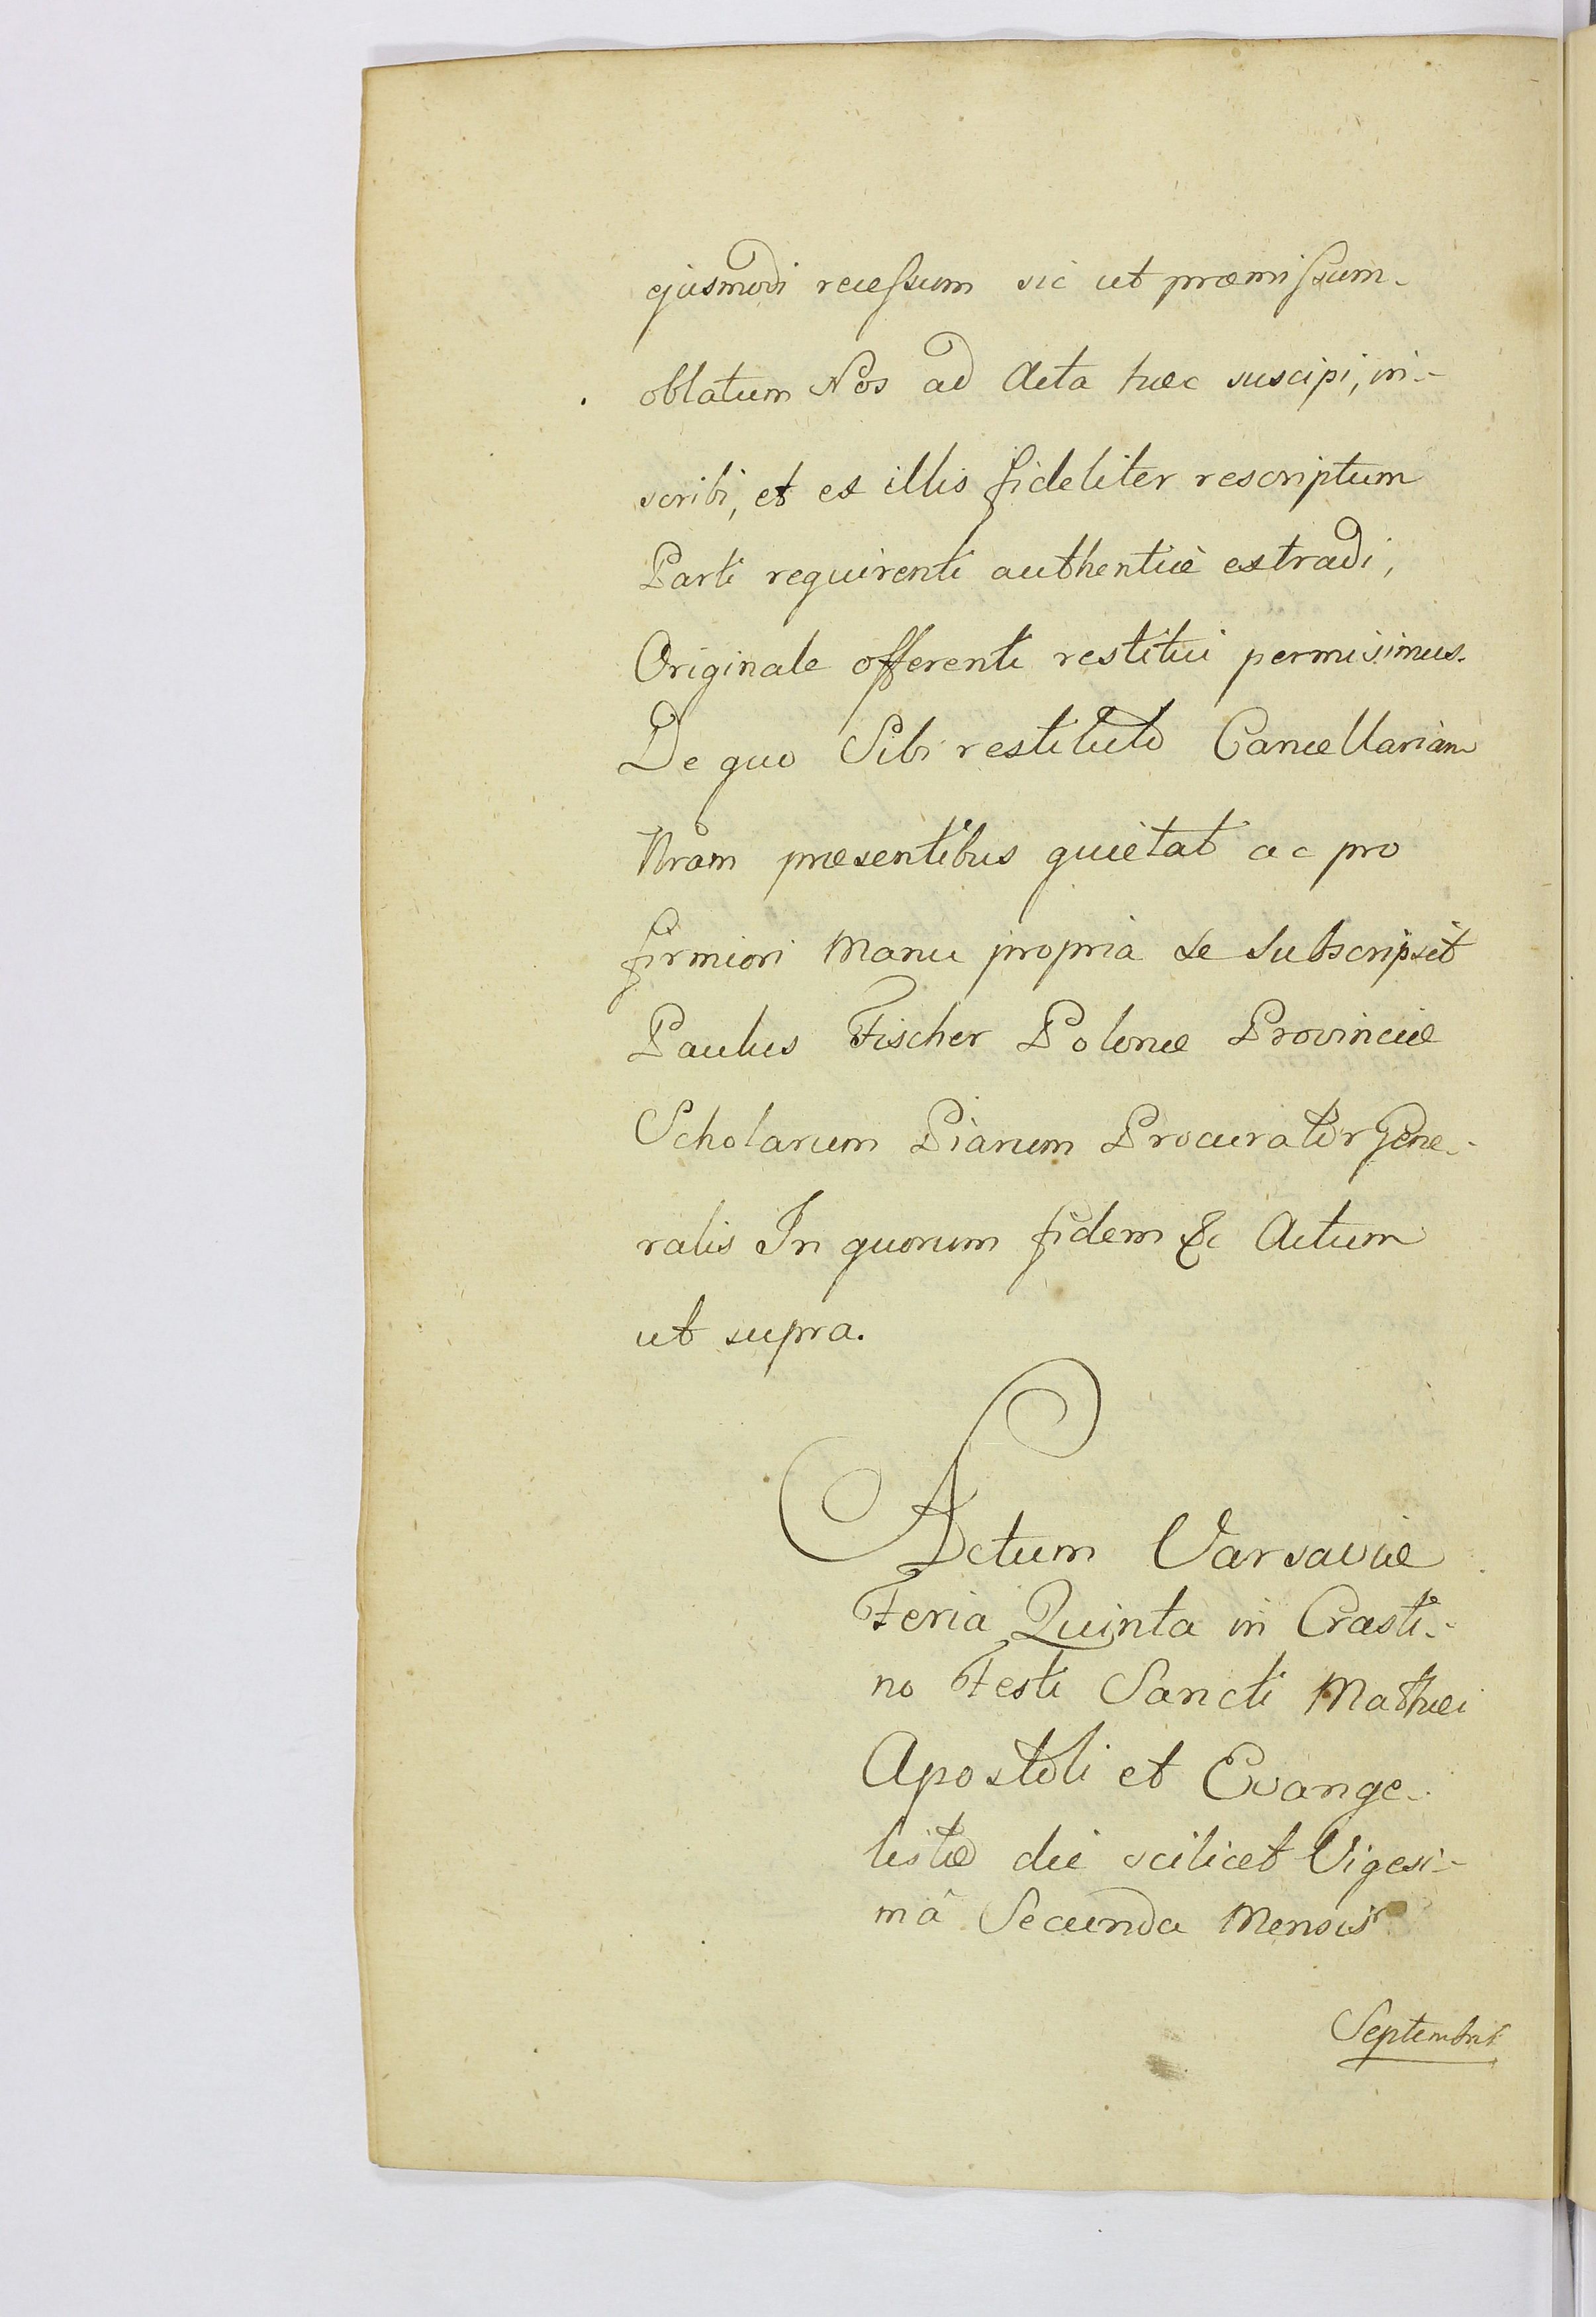 ejusmodi recessum sic ut præmissum
oblatum Nos ad Acta hæc suscipi, in-
scribi, et ex illis fideliter rescriptum
Parti requirenti authenticè extradi,
Originale offerenti restitui permisimus.
De quo Sibi restituto Cancellariam
Nram præsentibus quietat ac pro
firmiori Manu propria se subscripsit
Paulus Fischer Polonæ Provinciæ
Scholarum Piarum Procurator Gene-
ralis In quorum fidem &c Actum
ut supra.
Actum Varsaviæ
Feria Quinta in Crasti-
no Festi Sancti Mathæi
Apostoli et Evange-
listæ die scilicet Vigesi-
mâ Secunda Mensis
Septembris